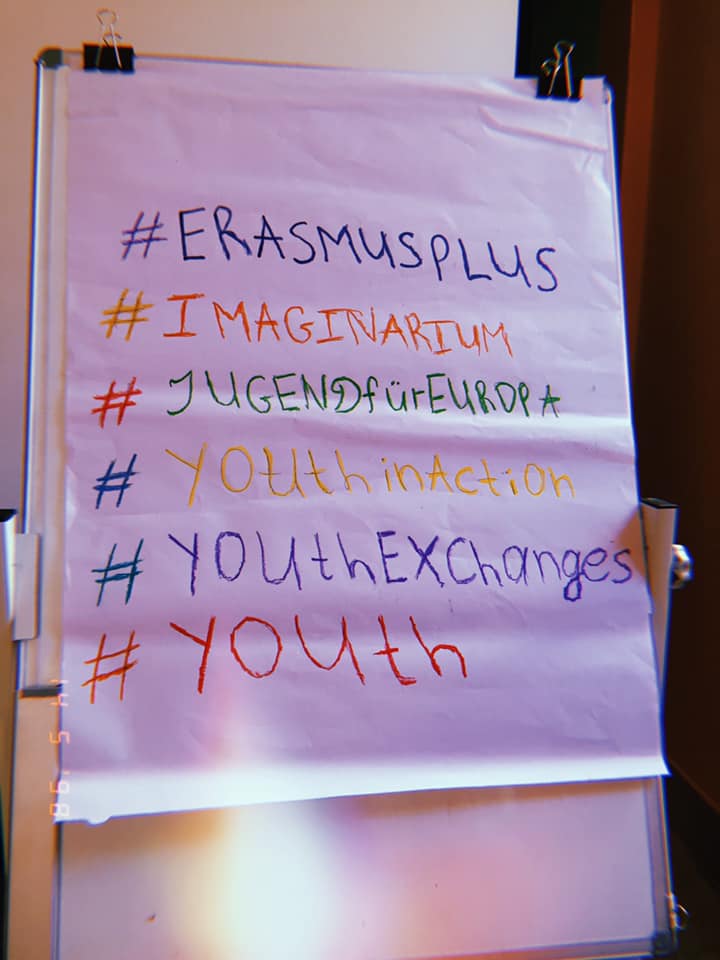 #ERASMUSPLUS
#IMAGINARIUM
#JUGENDfürEUROPA
#YOUthinAction
#YOUthEXChanges
#YOUth
14 5 '98